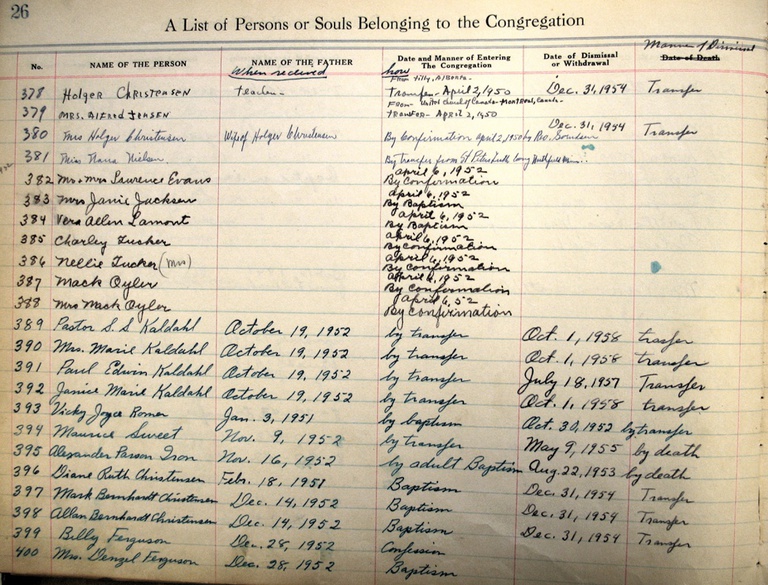 26
A List of Persons or Souls Belonging to the Congregation
Manner of Dismissal
No. NAME OF THE PERSON NAME OF THE FATHER Date and Manner of Entering The Congregation Date of Dismissal or Withdrawal Date of Death
When received how
From Tilly, Alberta-
378 Holger Christensen teacher- Transfer- April 2, 1950 Dec. 31, 1954 Transfer
From United Church of Canada- Montreal, Canada-
379 Mrs. Alfred Jensen Transfer- April 2, 1950
380 Mrs Holger Christensen Wife of Holger Christensen By Confirmation April 2, 1950 by Rev. Dec. 31, 1954 Transfer
381 Miss Nana Nielsen. By transfer from St Peters Luth
april 6, 1952
382 Mr + Mrs Laurence Evans By Confirmation
april 6, 1952
383 Mrs Janie Jackson By Baptism
april 6, 1952
384 Vera Allen Lamont By Baptism
april 6, 1952
385 Charley Tucker By Confirmation
april 6, 1952
386 Nellie Tucker (Mrs) By Confirmation
april 6, 1952
387 Mack Oyler By Confirmation
april 6, 52
388 Mrs Mack Oyler By Confirmation
389 Pastor S. S. Kaldahl October 19, 1952 by transfer Oct. 1, 1958 trasfer
390 Mrs. Marie Kaldahl October 19, 1952 by transfer Oct. 1, 1958 transfer
391 Paul Edwin Kaldahl October 19, 1952 by transfer July 18, 1957 Transfer
392 Janice Marie Kaldahl October 19, 1952 by transfer Oct. 1, 1958 transfer
393 Vicky Joyce Romer Jan. 3, 1951 by baptism Oct. 30, 1952 by transfer
394 Maurice Sweet Nov. 9, 1952 by transfer May 9, 1955 by death
395 Alexander Parson Iron Nov. 16, 1952 by adult Baptism Aug. 22, 1953 by death
396 Diane Ruth Christensen Feb. 18, 1951 Baptism Dec. 31, 1954 Transfer
397 Mark Bernhardt Christensen Dec. 14, 1952 Baptism Dec. 31, 1954 Transfer
398 Allan Bernhardt Christensen Dec. 14, 1952 Baptism Dec. 31, 1954 Transfer
399 Billy Ferguson Dec. 28, 1952 Confession
400 Mrs. Denzel Ferguson Dec. 28, 1952 Baptism